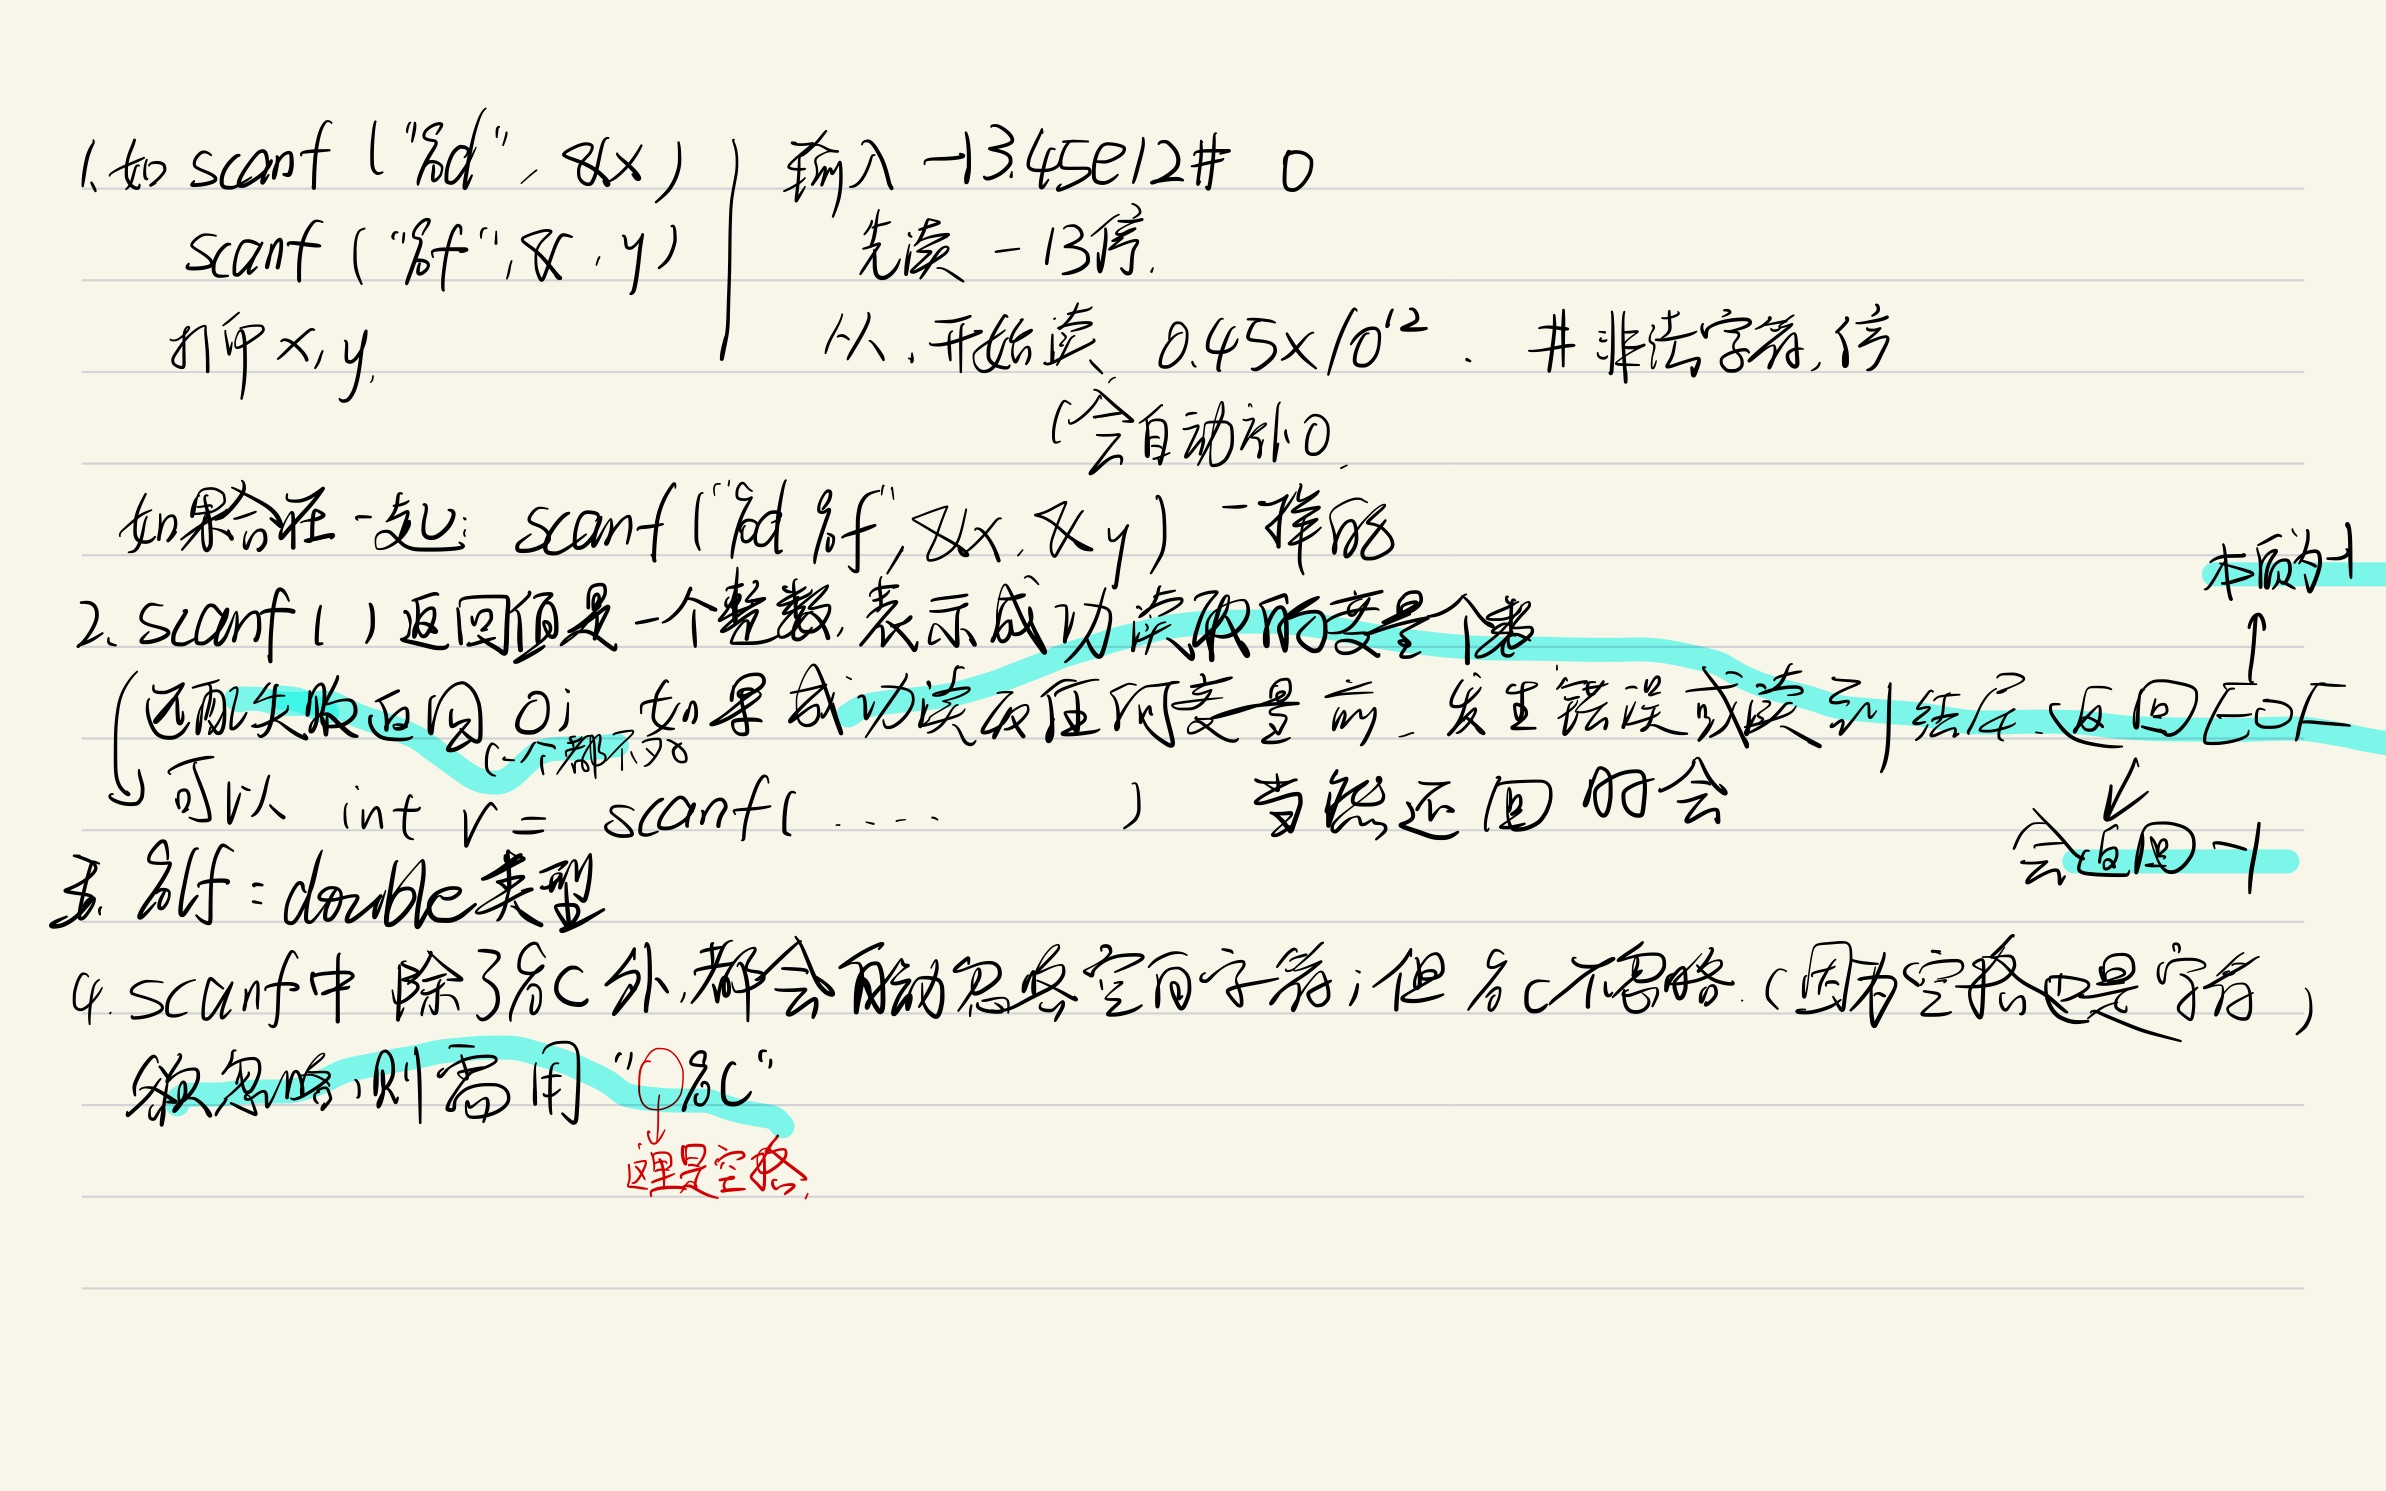 1.如 scanf ("%d", &x)
scanf ("%f", &, y)
打印 x, y.
输入 -13.45e12# 0
先读 -13停.
从.开始读 0.45×10¹². #非法字符,停
(会自动补0.
如果合在一起: scanf ("%d %f", &x, &y) 一样的
本质为-1
2. scanf( )返回值是一个整数,表示成功读取的变量个数
匹配失败返回 0; 如果成功读取任何变量前,发生错误或读到结尾.返回EOF
(一个都不对
可以 int r = scanf( ..... ) 当然返回时会
会返回 -1
3. %lf: double类型
4. scanf中 除了%c外,都会自动忽略空白字符;但%c不忽略.(因为空格也是字符)
欲忽略,则需用" %c"
这里是空格.